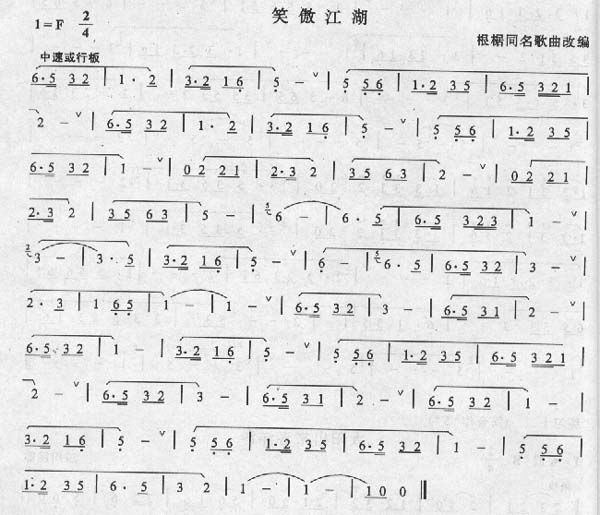 笑傲江湖
1=F 2/4
根椐同名歌曲改编
中速或行板
6·5 3 2 | 1· 2 | 3·2 1 6 | 5 - ∨ | 5 5 6 | 1·2 3 5 | 6·5 3 2 1 |
2 - ∨ | 6·5 3 2 | 1· 2 | 3·2 1 6 | 5 - ∨ | 5 5 6 | 1·2 3 5 |
6·5 3 2 | 1 - ∨ | 0 2 2 1 | 2·3 2 | 3 5 6 3 | 2 - ∨ | 0 2 2 1 |
2·3 2 | 3 5 6 3 | 5 - | 6 - | 6· 5 | 6·5 3 2 3 | 1 - ∨ |
3 - | 3· 5 | 3·2 1 6 | 5 - ∨ | 6 - | 6· 5 | 6·5 3 2 | 3 - ∨ |
2· 3 | 1 6 5 | 1 - | 1 - ∨ | 6·5 3 2 | 3 - | 6·5 3 1 | 2 - ∨ |
6·5 3 2 | 1 - | 3·2 1 6 | 5 - ∨ | 5 5 6 | 1·2 3 5 | 6·5 3 2 1 |
2 - ∨ | 6·5 3 2 | 3 - | 6·5 3 1 | 2 - ∨ | 6·5 3 2 | 1 - |
3·2 1 6 | 5 - ∨ | 5 5 6 | 1·2 3 5 | 6·5 3 2 | 1 - | 5 5 6 |
1·2 3 5 | 6· 5 | 3 2 | 1 - | 1 - | 1 0 0 ‖